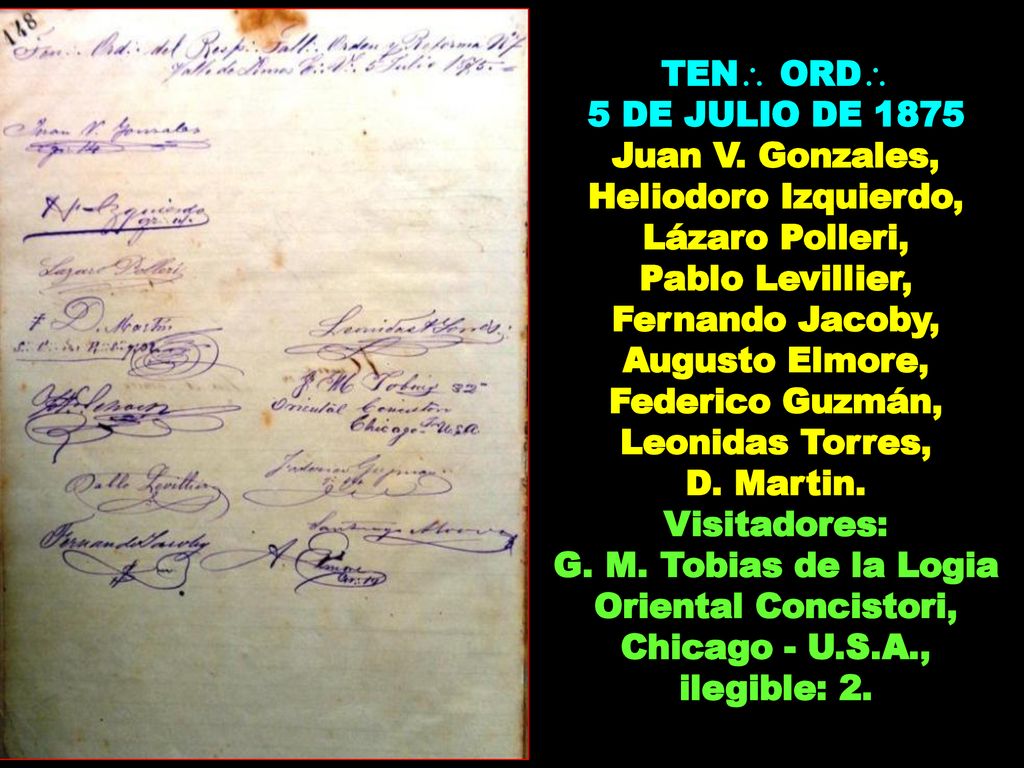 148
Ten∴ Ord∴ del Resp∴ Tall∴ Orden y Reforma Nº
Valle de Lima E∴ V∴ 5 Julio 1875.
Juan V. Gonzales
gr 14
H Izquierdo
Lazaro Polleri
D. Martin
Leonidas Torres
G. M. Tobias 32
Oriental Concistori
Chicago U.S.A
Pablo Levillier
Federico Guzman
Fernando Jacoby
Santiago
A. Elmore
TEN∴ ORD∴
5 DE JULIO DE 1875
Juan V. Gonzales,
Heliodoro Izquierdo,
Lázaro Polleri,
Pablo Levillier,
Fernando Jacoby,
Augusto Elmore,
Federico Guzmán,
Leonidas Torres,
D. Martin.
Visitadores:
G. M. Tobias de la Logia
Oriental Concistori,
Chicago - U.S.A.,
ilegible: 2.